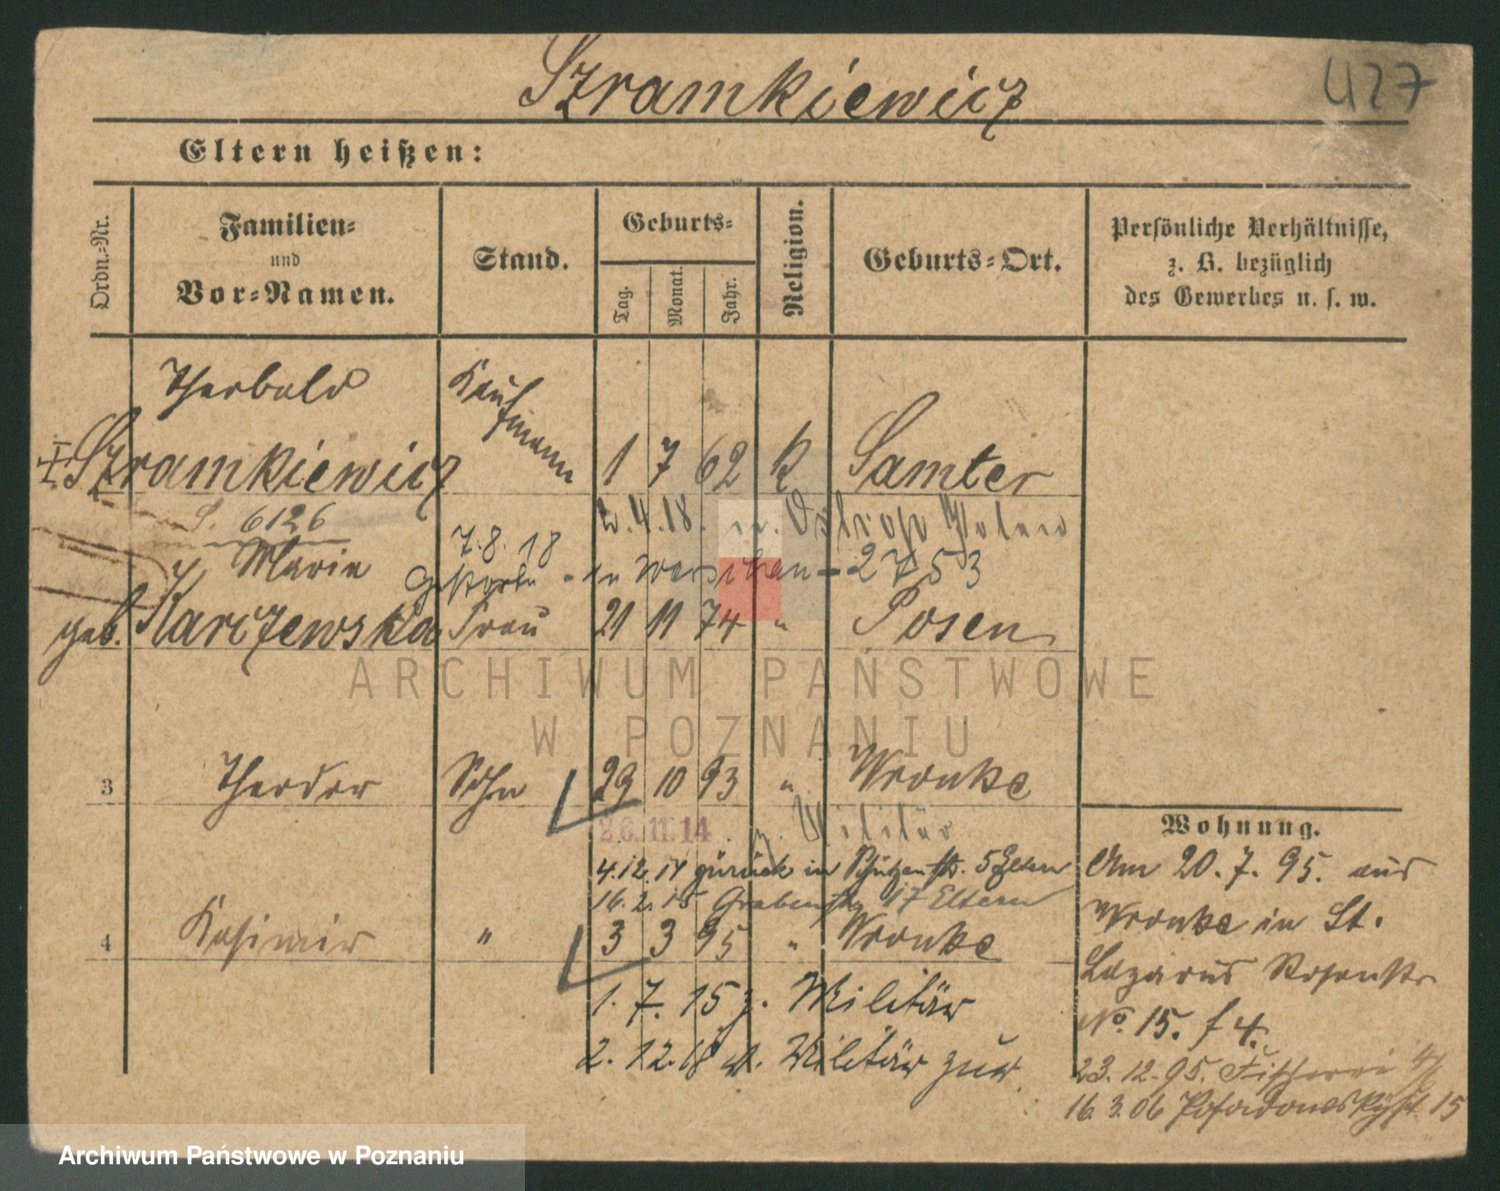 Szramkiewicz
427
Eltern heißen:
Ordn.-Nr.
Familien-
und
Vor-Namen.
Stand.
Geburts-
Tag.
Monat.
Jahr.
Religion.
Geburts-Ort.
Persönliche Verhältnisse,
z. B. bezüglich
des Gewerbes u. s. w.
Kaufmann
Szramkiewicz 1 7 62 k Samter
6126
2.4.18.
7.8.18
Maria
2753
geb. Karczewska Frau 21 11 74 " Posen
ARCHIWUM PAŃSTWOWE
W POZNANIU
3 Theodor Sohn 29 10 93 " Wronke
26.11.14 z. Militär
4.12.14 zurück in Schützenstr. 5 Eltern
16.2.15 Grabenstr. 17 Eltern
4 Kasimir " 3 3 95 " Wronke
1.7.15 z. Militär
2.12.18 v. Militär zur
Wohnung.
Am 20.7.95. aus
Wronke in St.
Lazarus Rosenstr
No. 15. f 4.
23.12.95. Fischerei
16.3.06 Posadowskystr 15
Archiwum Państwowe w Poznaniu